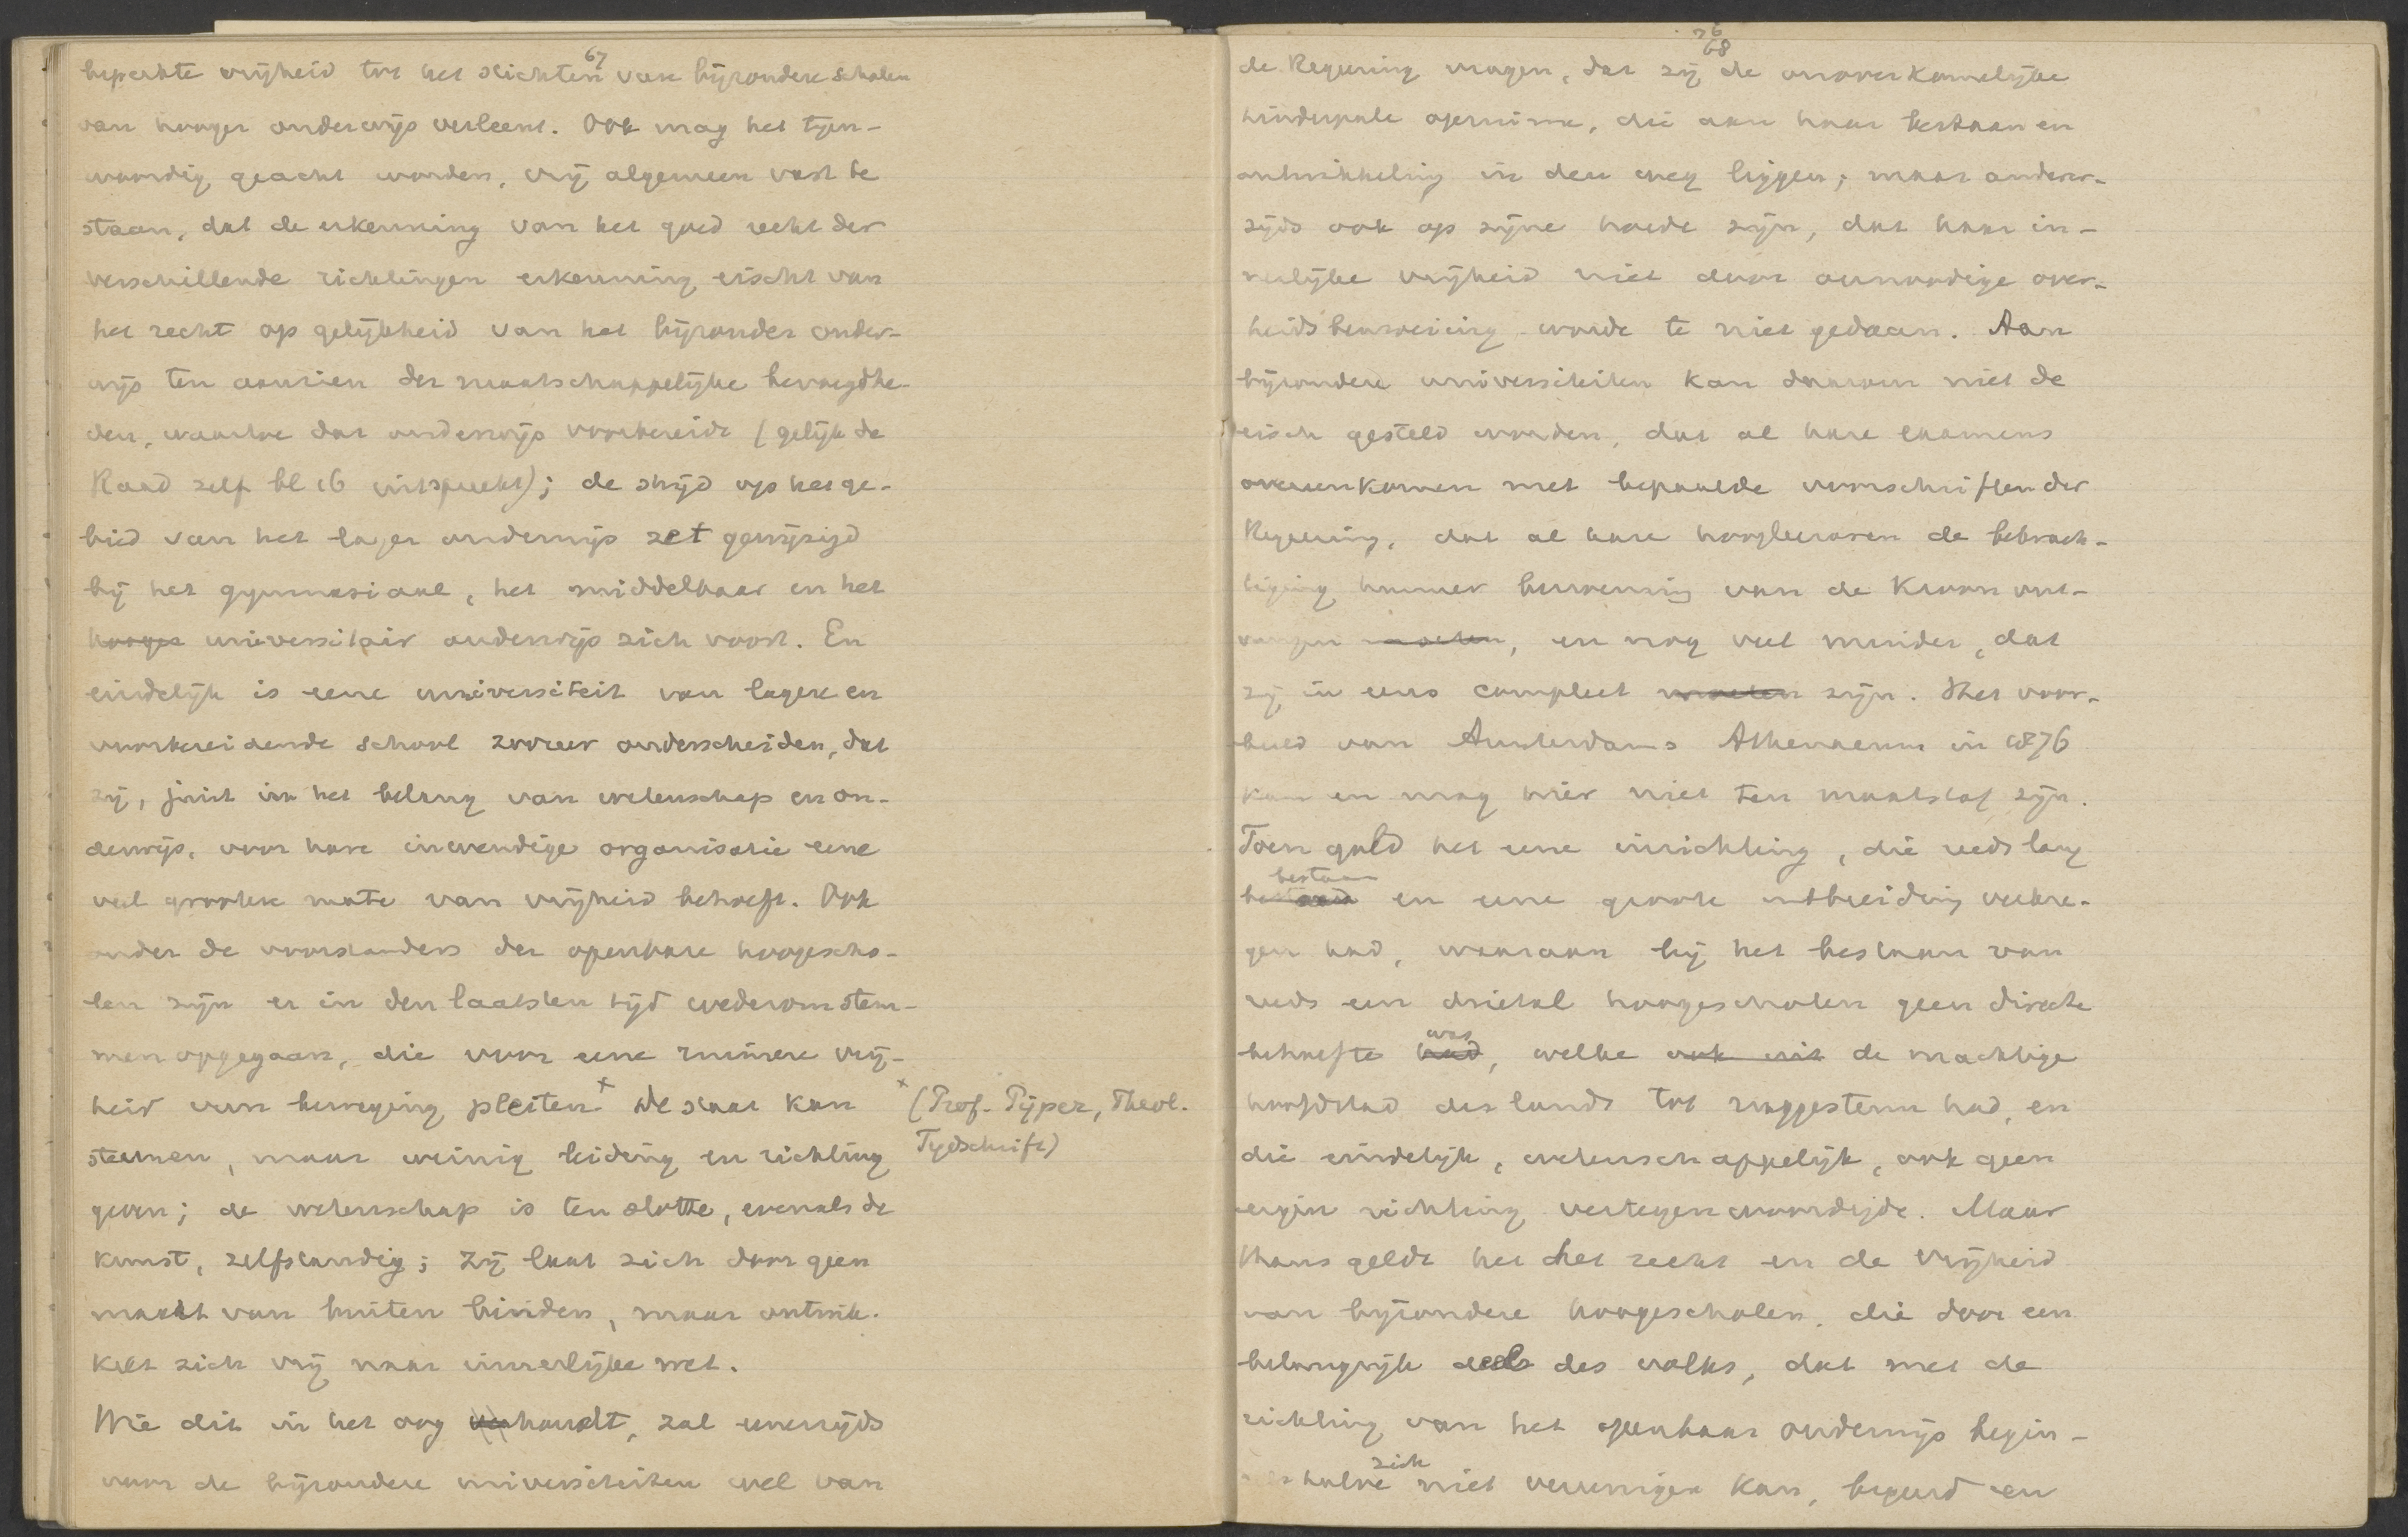 67
beperkte vrijheid tot het stichten van bijzondere scholen
van hooger onderwijs verleent. Ook mag het tegen-
woordig geacht worden, vrij algemeen vast te
staan, dat de erkenning van het goed recht der
verschillende richtingen erkenning eischt van
het recht op gelijkheid van het bijzonder onder-
wijs ten aanzien der maatschappelijke bevoegdhe-
den, waartoe dat onderwijs voorbereidt (gelijk de
Raad zelf bl 16 uitspreekt); de strijd op het ge-
bied van het lager onderwijs zet gewijzigd
bij het gymnasiaal, het middelbaar en het
hooger universitair onderwijs zich voort. En
eindelijk is eene universiteit van lagere en
voorbereidende school zoozeer onderscheiden, dat
zij, juist in het belang van wetenschap en on-
derwijs, voor hare inwendige organisatie eene
veel grootere mate van vrijheid behoeft. Ook
onder de voorstanders der openbare hoogescho-
len zijn er in den laatsten tijd wederom stem-
men opgegaan, die voor eene ruimere vrij-
heid van beweging pleiten x De staat kan
x (Prof. Pijper, Theol.
Tijdschrift)
steunen, maar weinig leiding en richting
geven; de wetenschap is ten slotte, evenals de
kunst, zelfstandig; zij laat zich door geen
macht van buiten binden, maar ontwik-
kelt zich vrij naar innerlijke wet.
Wie dit in het oog houdt, zal eenerzijds
voor de bijzondere universiteiten wel van
76
68
de Regeering vragen, dat zij de onoverkomelijke
hinderpale opruime, die aan haar bestaan en
ontwikkeling in den weg liggen; maar ander-
zijds ook op zijne hoede zijn, dat haar in-
nerlijke vrijheid niet door onnoodige over-
heidsbemoeiing worde te niet gedaan. Aan
bijzondere universiteiten kan daarom niet de
eisch gesteld worden, dat al hare examens
overeenkomen met bepaalde voorschriften der
Regeering, dat al hare hoogleeraren de bekrach-
tiging hunner benoeming van de Kroon ont-
vangen moeten, en nog veel minder, dat
zij in eens compleet moeten zijn. Het voor-
beeld van Amsterdams Athenaeum in 1876
kan en mag hier niet ten maatstaf zijn.
Toen gold het eene inrichting, die reeds lang
bestaan
bestond en eene groote uitbreiding verkre-
gen had, waaraan bij het bestaan van
reeds een drietal hoogescholen geen directe
was
behoefte had, welke ook uit de machtige
hoofdstad des lands tot ruggesteun had, en
die eindelijk, wetenschappelijk, ook geen
eigen richting vertegenwoordigde. Maar
thans geldt het het recht en de vrijheid
van bijzondere hoogescholen, die door een
belangrijk deel des volks, dat met de
richting van het openbaar onderwijs begin-
zich
selshalve niet vereenigen kan, begeerd en